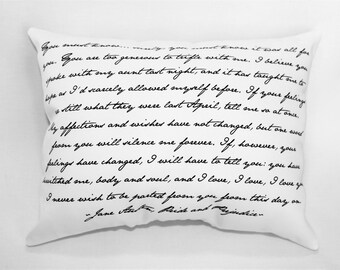 You must know... surely, you must know it was all for
you. You are too generous to trifle with me. I believe you
spoke with my aunt last night, and it has taught me to
hope as I'd scarcely allowed myself before. If your feelings
are still what they were last April, tell me so at once.
My affections and wishes have not changed, but one word
from you will silence me forever. If, however, your
feelings have changed, I will have to tell you: you have
bewitched me, body and soul, and I love, I love, I love you
I never wish to be parted from you from this day on
-Jane Austen Pride and Prejudice-